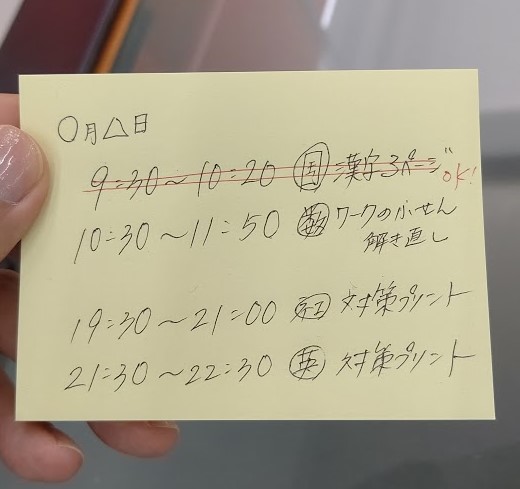 〇月△日
9:30～10:20 国 漢字3ページ OK!
10:30～11:50 数 ワークのふせん
解き直し
19:30～21:00 社 対策プリント
21:30～22:30 英 対策プリント